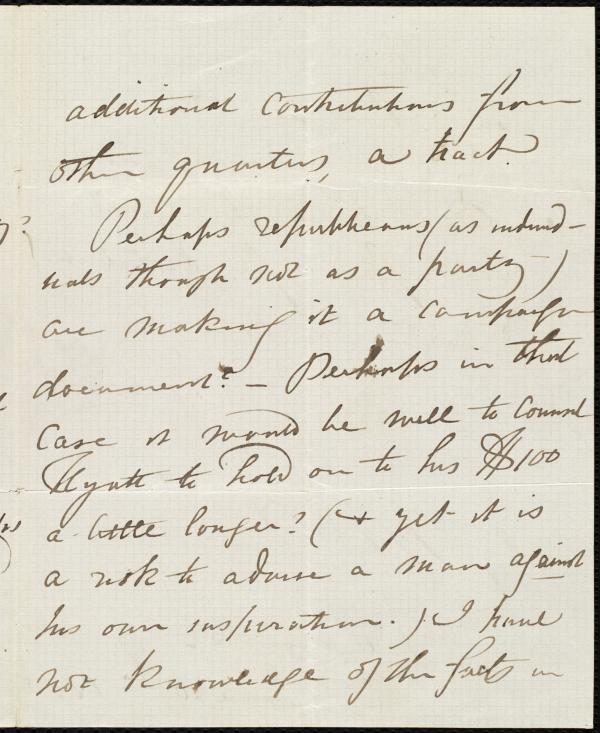 additional contributions from
other quarters, a tract.
Perhaps republicans (as individ-
uals though not as a party-)
are making it a campaign
document? - Perhaps in that
case it would be well to counsel
Hyatt to hold on to his $100
a little longer? (& yet it is
a risk to advise a man against
his own inspiration.) I have
not knowledge of the facts in